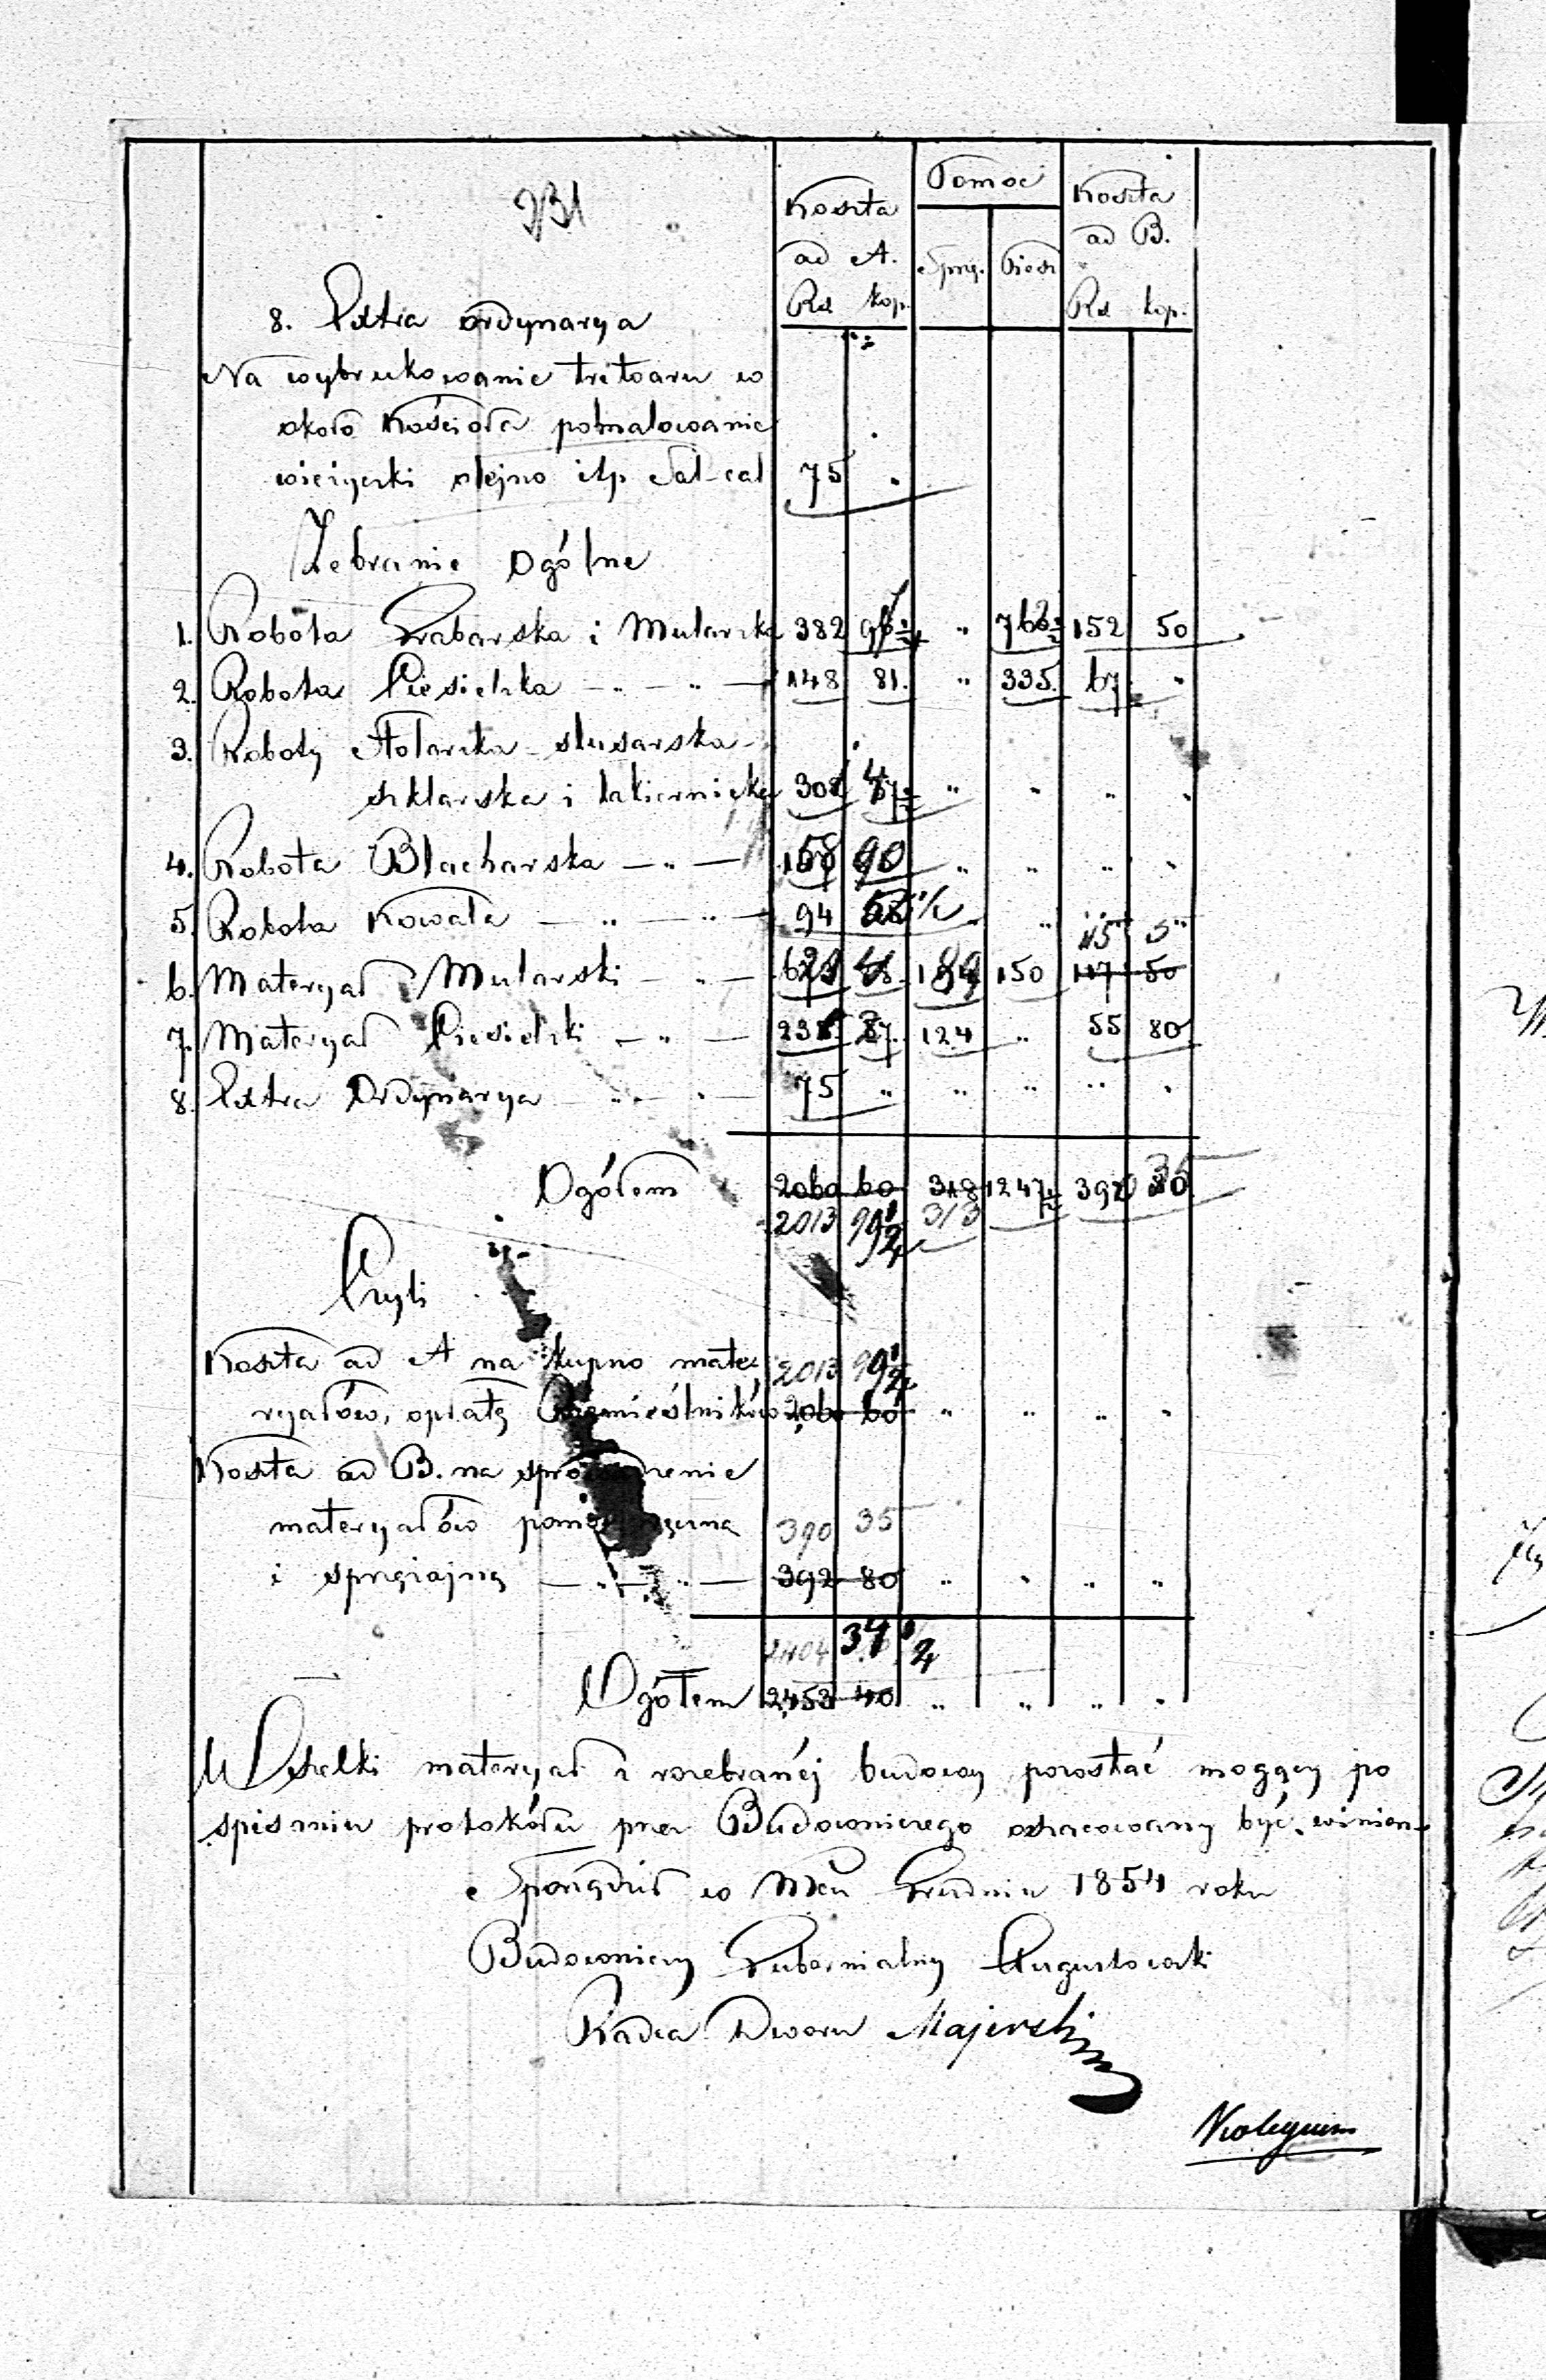 231
Koszta ad A. Rs kop.
Pomoc
Sprzę. Piesz
Koszta ad B. Rs kop.
8. Extra ordynarya
Na wybrukowanie tretoaru w
około Kościoła pomalowanie
wieżyczki olejno itp Sal-cal 75 "
Zebranie Ogólne
1. Robota Grabarska i Mularska 382 " 762½ 152 50
2. Robota Ciesielska — " — " — 148 81. " 335. 67. "
3. Roboty Stolarska - slusarska -
szklarska i lakiernicka 308 " " " "
4. Robota Blacharska — " — 158 90 " " " "
5. Robota Kowala — " — " — 94 ½ " " "
45 5"
6. Materyał Mularski — " — 189 150 117 50
7. Materyał Ciesielski — " — 124 " 55 80
8. Extra Ordynarya — " — " — 75 " " " " "
Ogółem 2060 60 318 1247½ 392
2013 99½ 313
Czyli
Koszta ad A na kupno mate 2013 99½
ryałów, opłatę Rzemieślników 2060 60 " " " "
Koszta ad B. na sprowadzenie
materyałów 390 35
i sprzężajną — " — " — 392 80 " " " "
2404 34½
Ogółem 2453 40 " " " "
Wszelki materyał z rozebranéj budowy pozostać mogący po
spisaniu protokółu przez Budowniczego oszacowany być winien
Sporządził w Mcu Grudniu 1854 roku
Budowniczy Gubernialny Augustowski
Radca Dworu Majewski